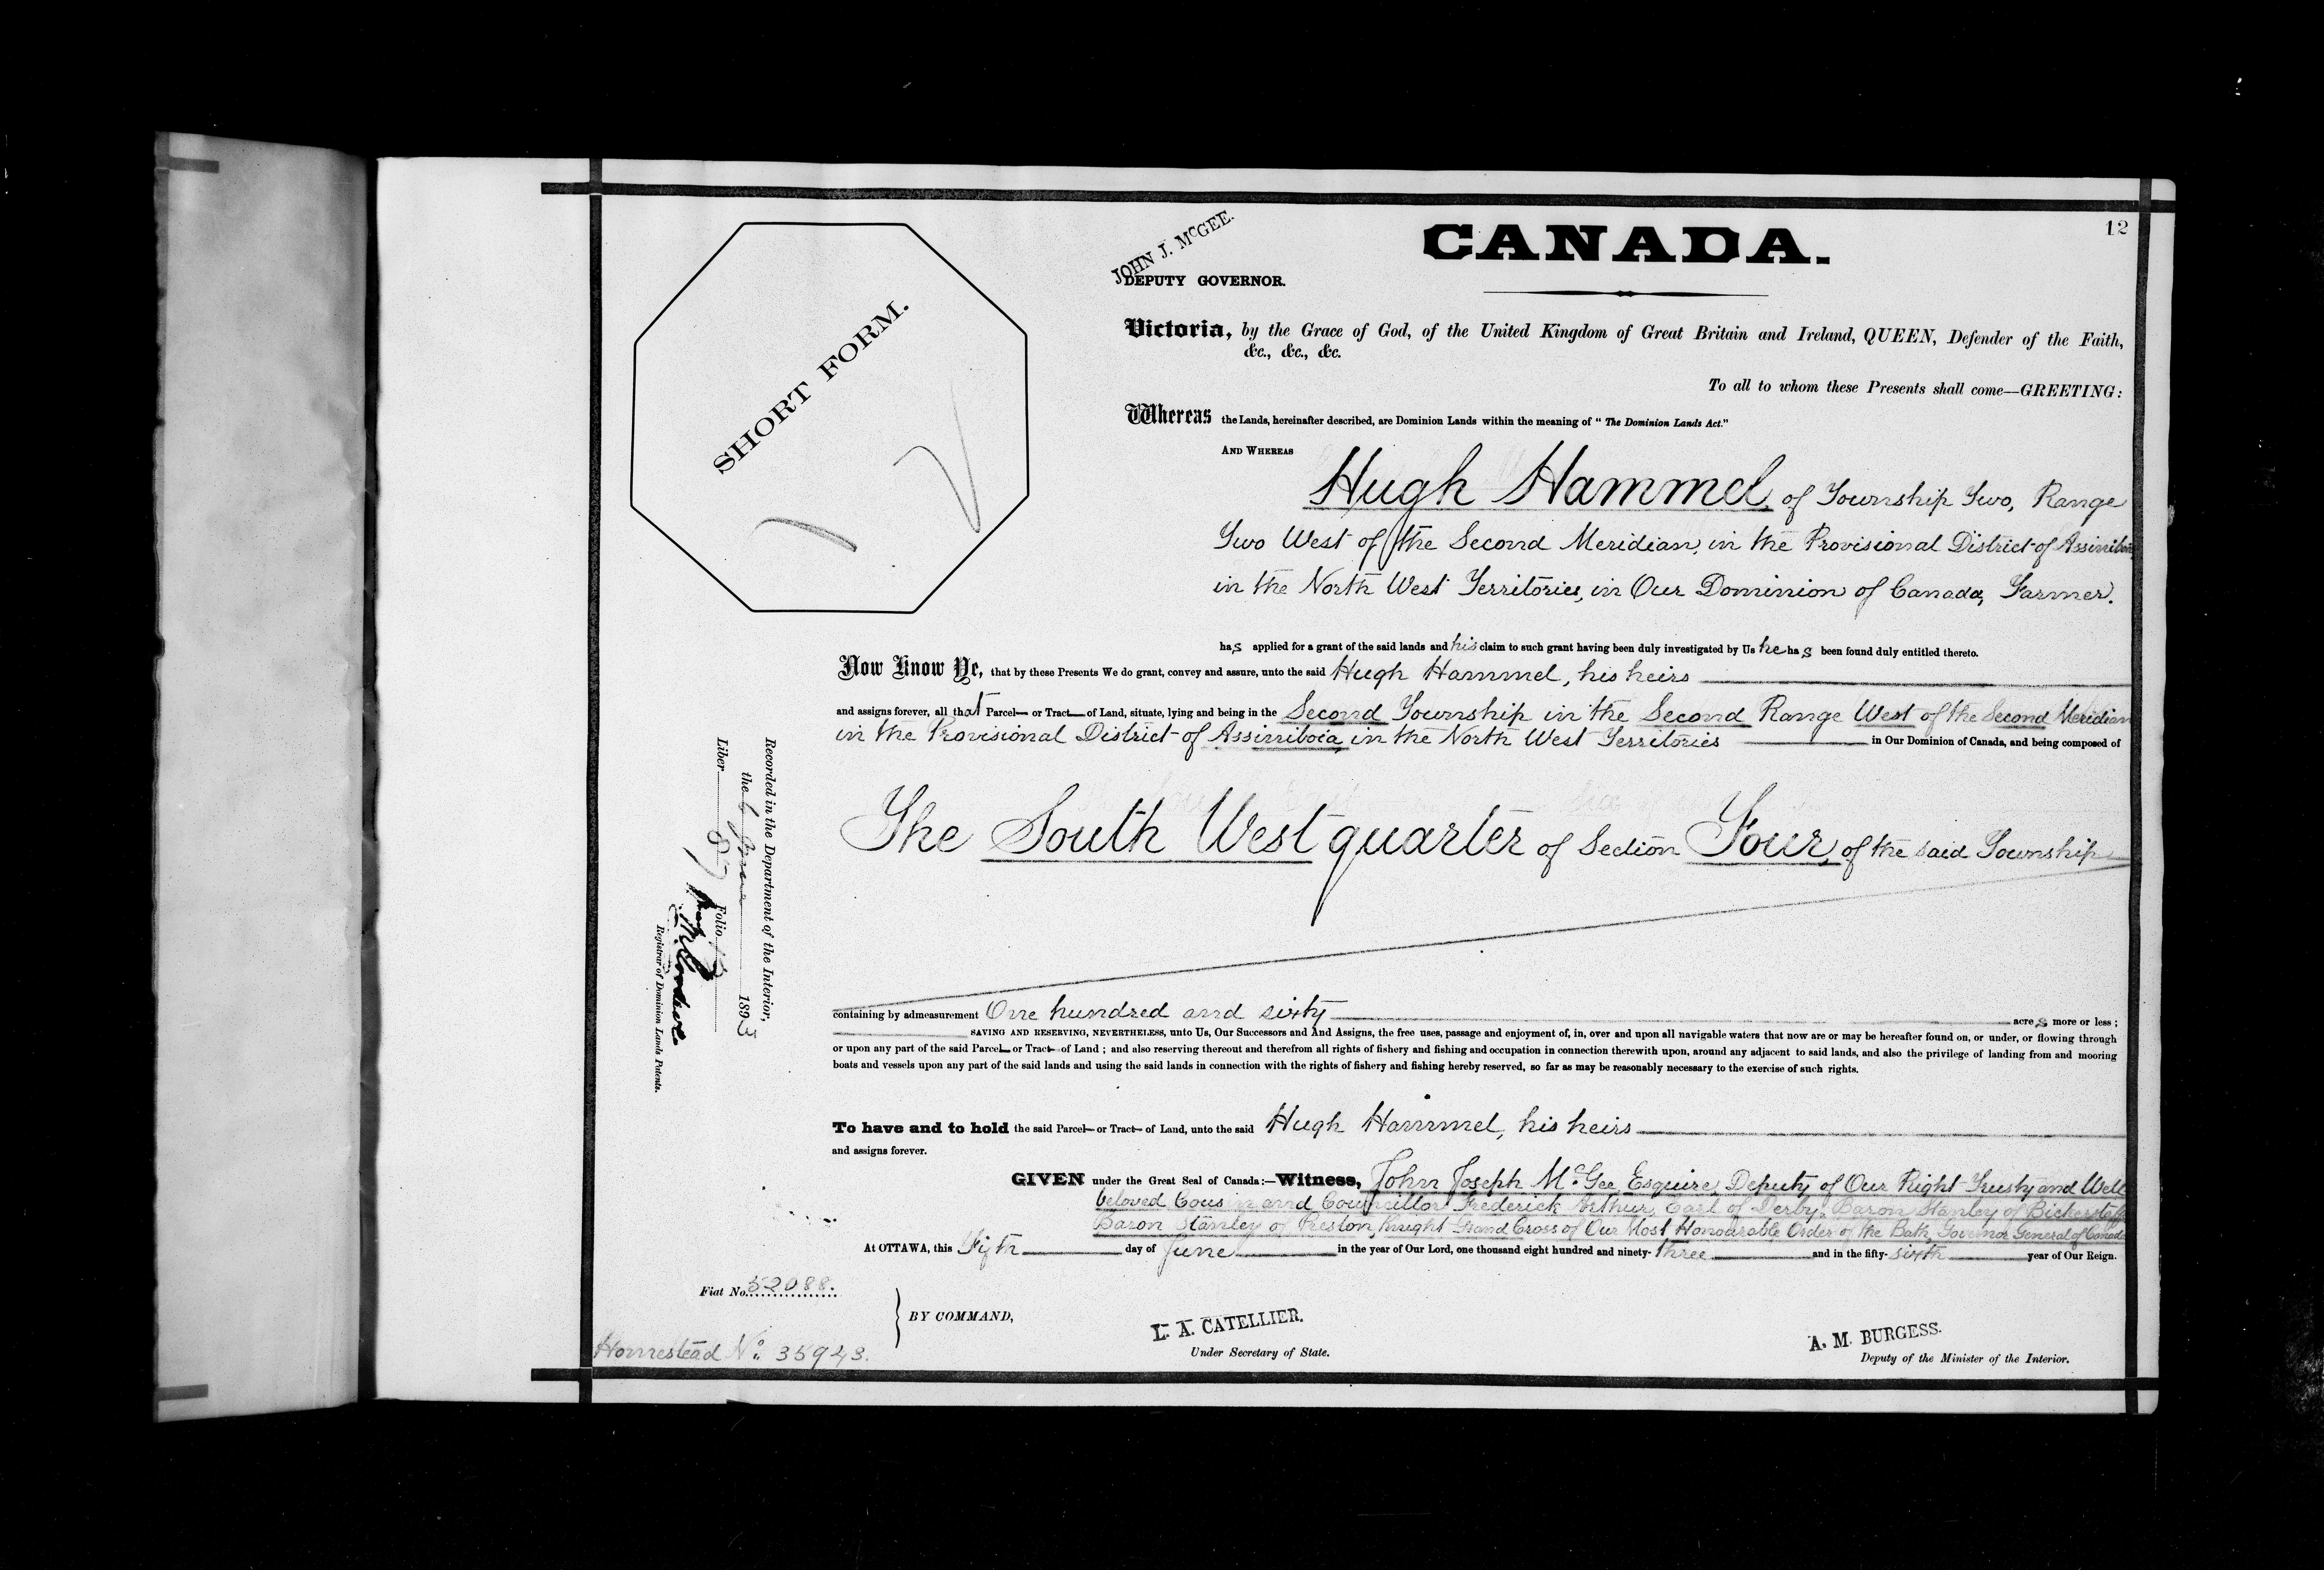 12
CANADA.
JOHN J. McGEE.
DEPUTY GOVERNOR.
SHORT FORM.
Victoria, by the Grace of God, of the United Kingdom of Great Britain and Ireland, QUEEN, Defender of the Faith,
&c., &c., &c.
To all to whom these Presents shall come—GREETING:
Whereas the Lands, hereinafter described, are Dominion Lands within the meaning of "The Dominion Lands Act."
AND WHEREAS
Hugh Hammel, of Township Two, Range
Two West of the Second Meridian, in the Provisional District of Assiniboia
in the North West Territories, in Our Dominion of Canada, Farmer.
has applied for a grant of the said lands and his claim to such grant having been duly investigated by Us he has been found duly entitled thereto.
Now Know Ye, that by these Presents We do grant, convey and assure, unto the said Hugh Hammel, his heirs
and assigns forever, all that Parcel or Tract of Land, situate, lying and being in the Second Township in the Second Range West of the Second Meridian
in the Provisional District of Assiniboia, in the North West Territories in Our Dominion of Canada, and being composed of
The South West quarter of Section Four, of the said Township
containing by admeasurement One hundred and sixty acres more or less;
SAVING AND RESERVING, NEVERTHELESS, unto Us, Our Successors and And Assigns, the free uses, passage and enjoyment of, in, over and upon all navigable waters that now are or may be hereafter found on, or under, or flowing through
or upon any part of the said Parcel or Tract of Land; and also reserving thereout and therefrom all rights of fishery and fishing and occupation in connection therewith upon, around any adjacent to said lands, and also the privilege of landing from and mooring
boats and vessels upon any part of the said lands and using the said lands in connection with the rights of fishery and fishing hereby reserved, so far as may be reasonably necessary to the exercise of such rights.
To have and to hold the said Parcel or Tract of Land, unto the said Hugh Hammel, his heirs
and assigns forever.
GIVEN under the Great Seal of Canada:—Witness, John Joseph McGee Esquire, Deputy of Our Right Trusty and Well
beloved Cousin and Councillor Frederick Arthur, Earl of Derby, Baron Stanley of Bickerstaffe
Baron Stanley of Preston, Knight Grand Cross of Our Most Honourable Order of the Bath, Governor General of Canada
At OTTAWA, this Fifth day of June in the year of Our Lord, one thousand eight hundred and ninety-three and in the fifty-sixth year of Our Reign.
Fiat No. 52088.
BY COMMAND,
L. A. CATELLIER.
Under Secretary of State.
A. M. BURGESS.
Deputy of the Minister of the Interior.
Homestead No. 35943.
Recorded in the Department of the Interior,
the 6 June 1893
Liber 87 Folio
Registrar of Dominion Lands Patents.